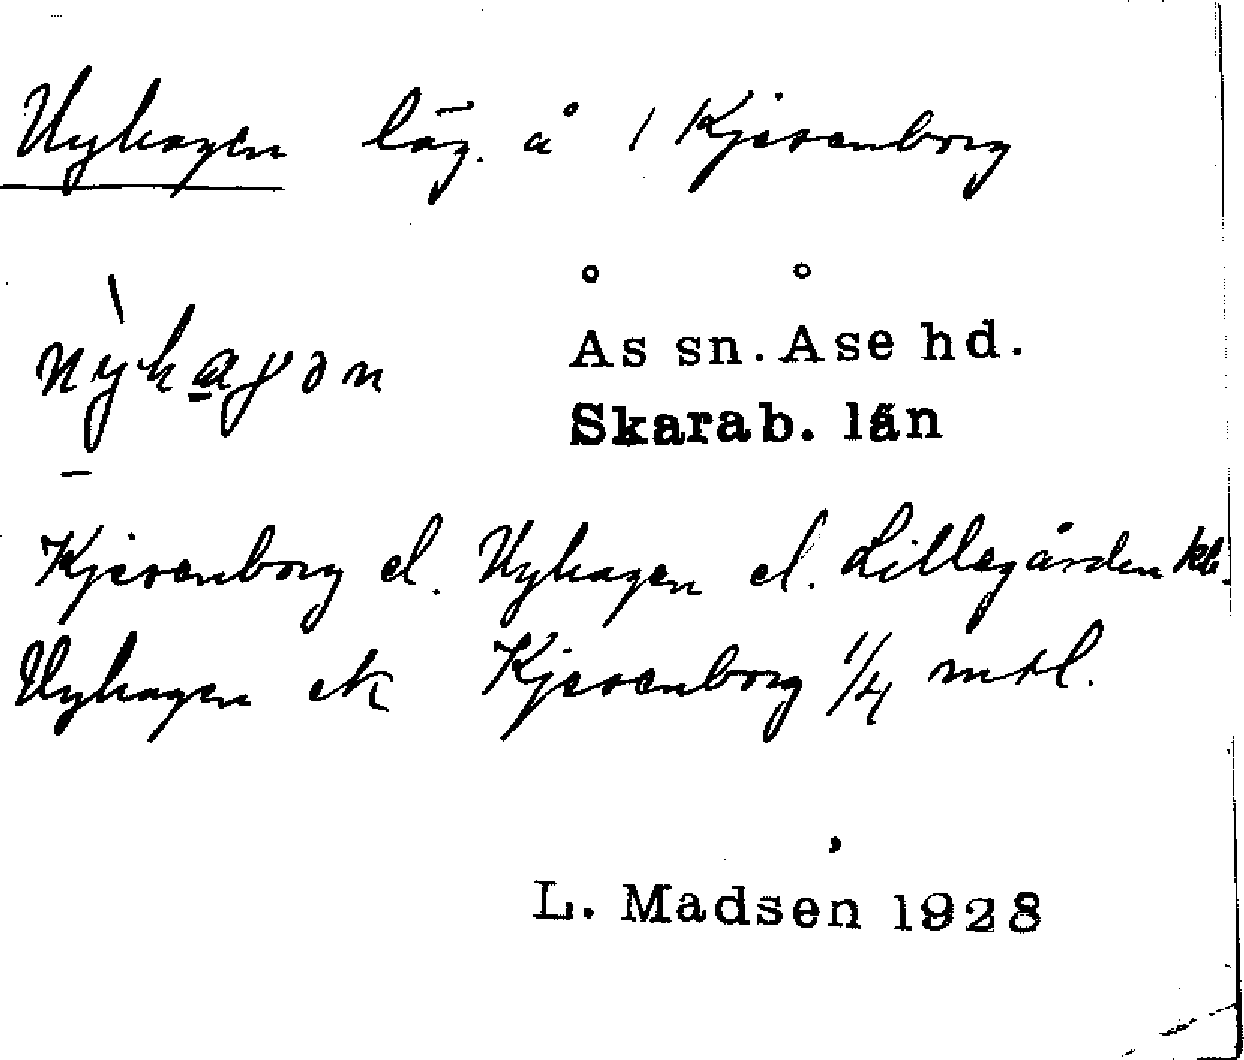 Nyhagen läg. å 1 Kjesenborg
nỳhagən
Ås sn. Åse hd.
Skarab. län
Kjesenborg el. Nyhagen el. Lillegården kb.
Nyhagen ek Kjesenborg 1/4 mtl.
L. Madsen 1928